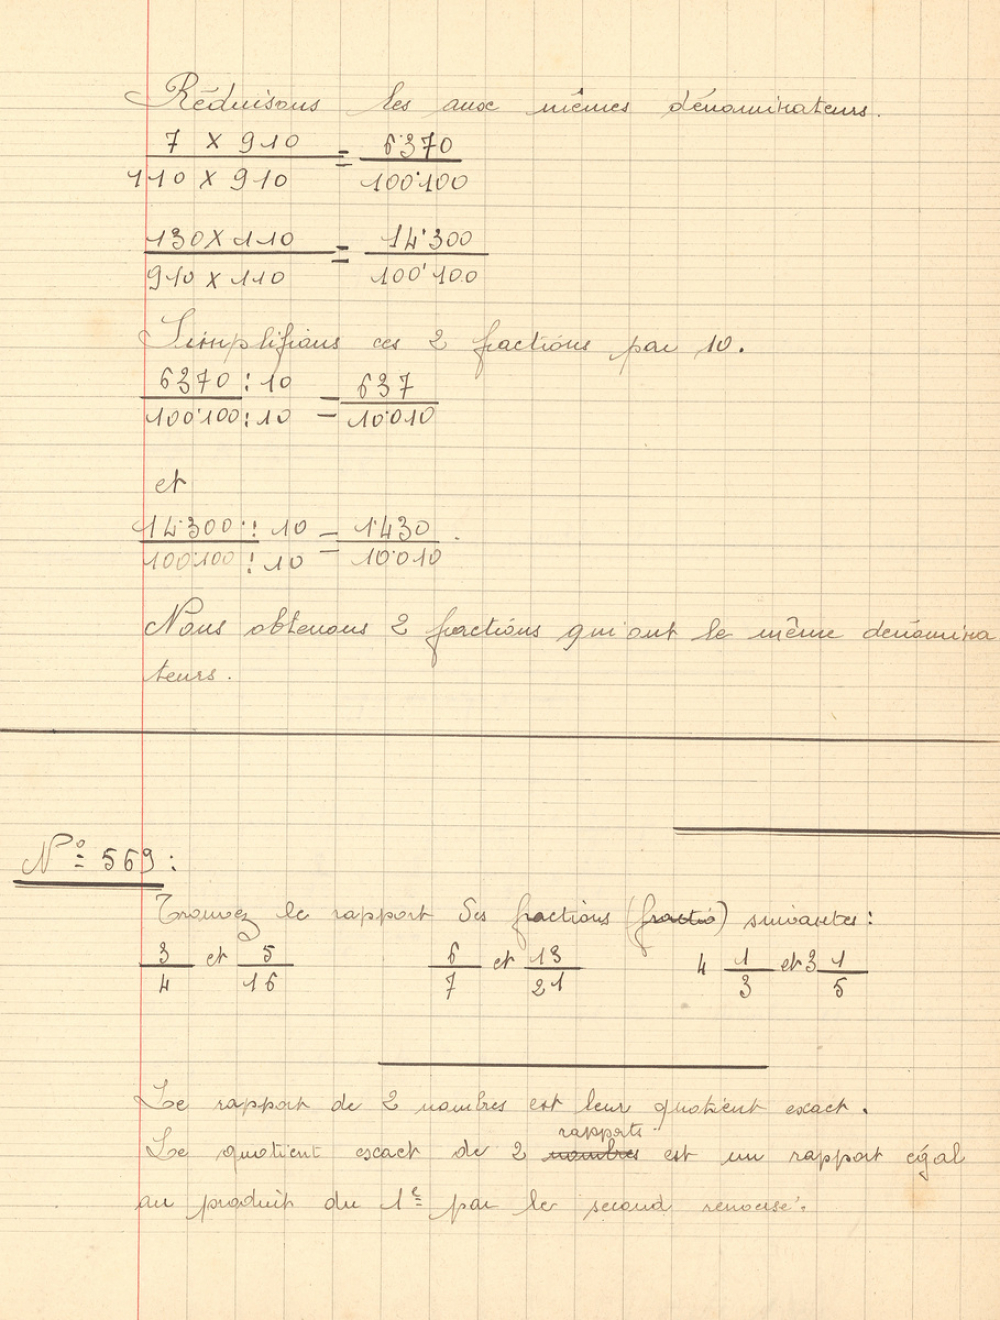 Réduisons les aux mêmes dénominateurs.
7 X 910 / 110 X 910 = 6370 / 100'100
130 X 110 / 910 X 110 = 14'300 / 100'100
Simplifions ces 2 fractions par 10.
6370 : 10 / 100'100 : 10 = 637 / 10'010
et
14'300 : 10 / 100'100 : 10 = 1'430 / 10'010.
Nous obtenons 2 fractions qui ont le même dénomina
teurs.
N° 569 :
Trouvez le rapport des fractions (fractio) suivantes :
3/4 et 5/16 6/7 et 13/21 4 1/3 et 3 1/5
Le rapport de 2 nombres est leur quotient exact.
rapports
Le quotient exact de 2 nombres est un rapport égal
au produit du 1e par le second renversé.